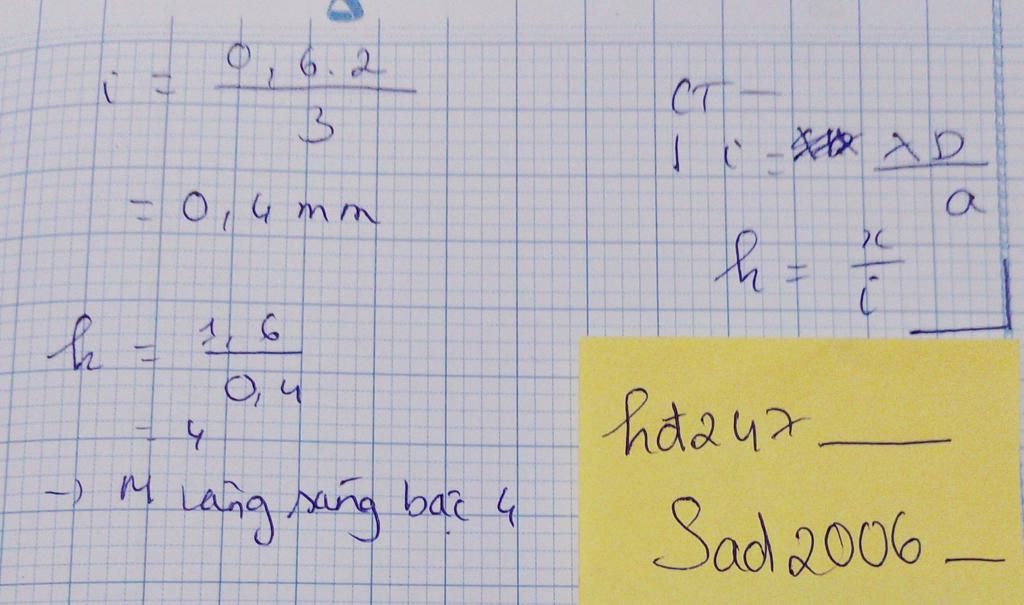 i = 0,6.2 / 3
= 0,4 mm
k = 1,6 / 0,4
= 4
-> M vâng sáng bậc 4
CT
i = λD / a
k = x / i
hđ247
Sad2006